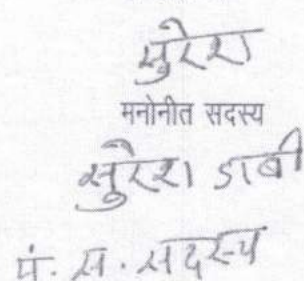 सुरेश
मनोनीत सदस्य
सुरेश डाबी
पं. स. सदस्य